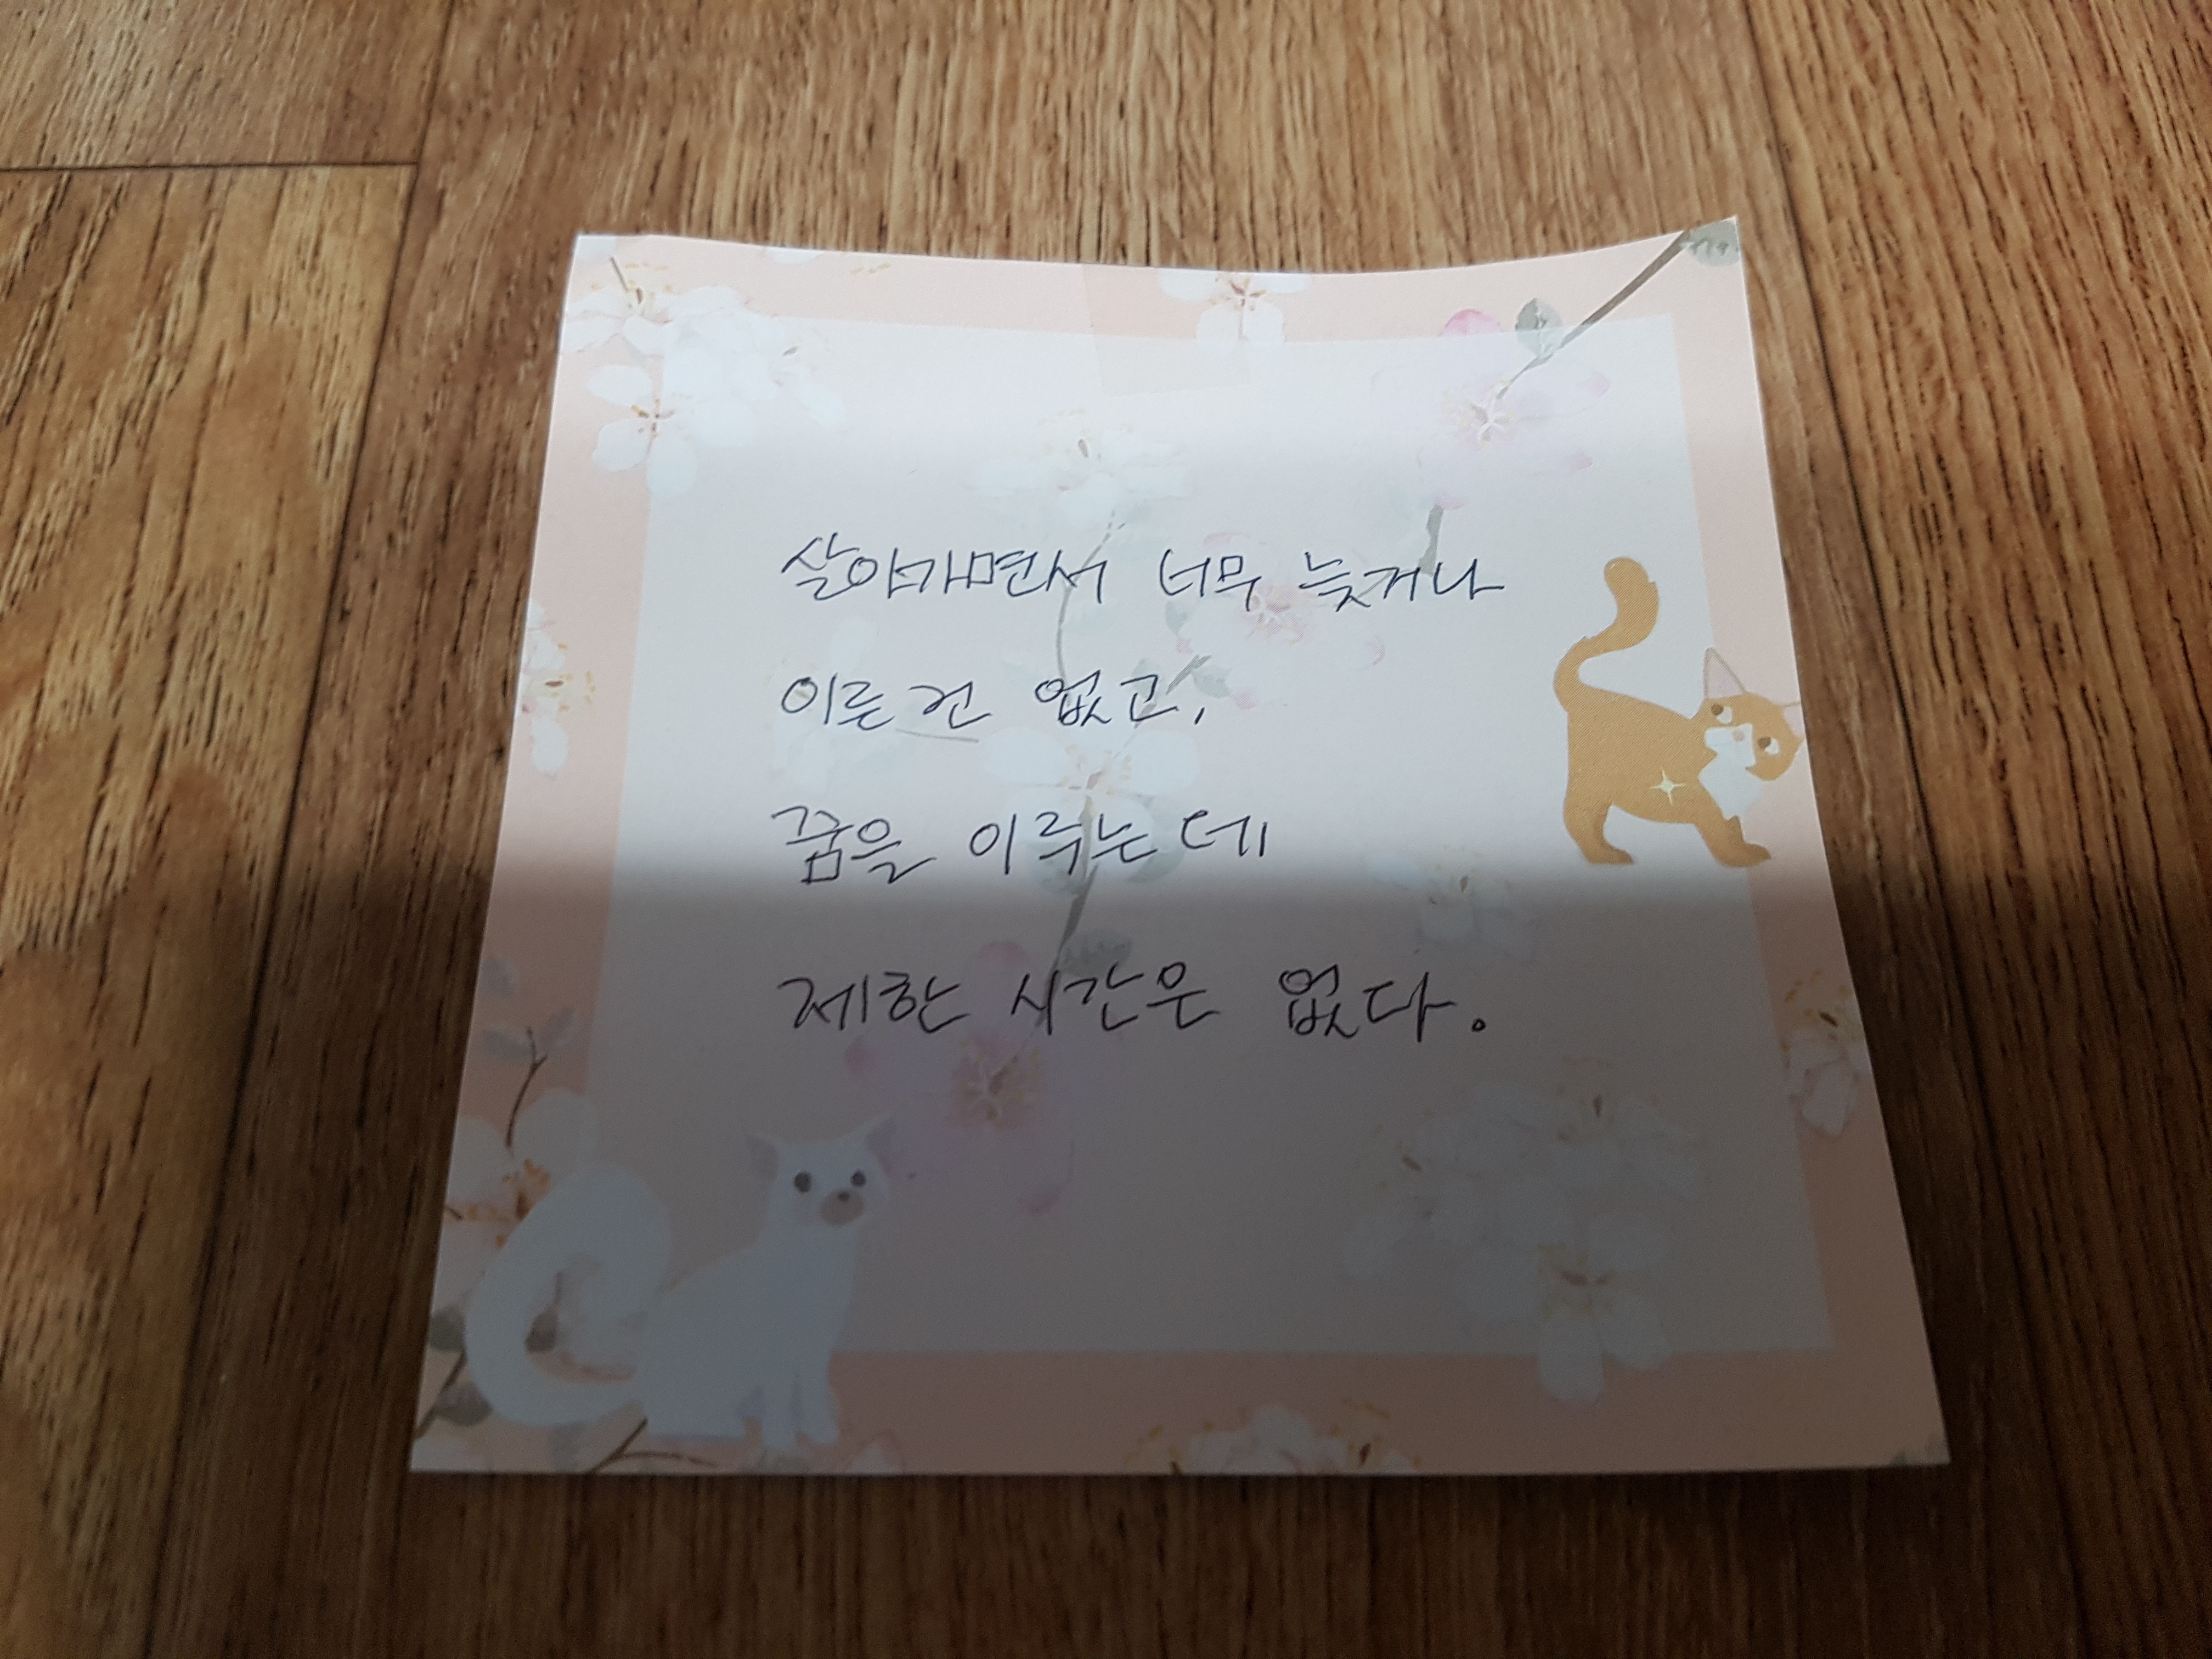 살아가면서 너무 늦거나
이른 건 없고,
꿈을 이루는데
제한 시간은 없다.